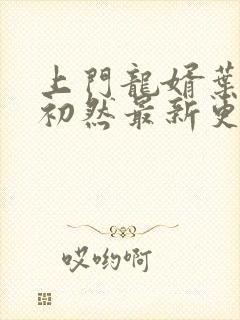 上門龍婿葉
初然最新更
哎哟啊